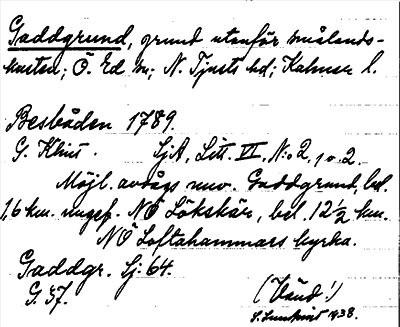 Gaddgrund, grund utanför smålands-
kusten; Ö. Ed sn; N. Tjusts hd; Kalmar l.
Besbåden 1789.
G. Klint. SjA, Litt. VI. N:o 2, 1 o. 2.
Möjl. avsågs nuv. Gaddgrund, bel.
1,6 km. ungef. NÖ Lökskär, bel. 12½ km.
NÖ Loftahammars kyrka.
Gaddgr. Sj. 64.
G. 37. (Vänd!)
1938.